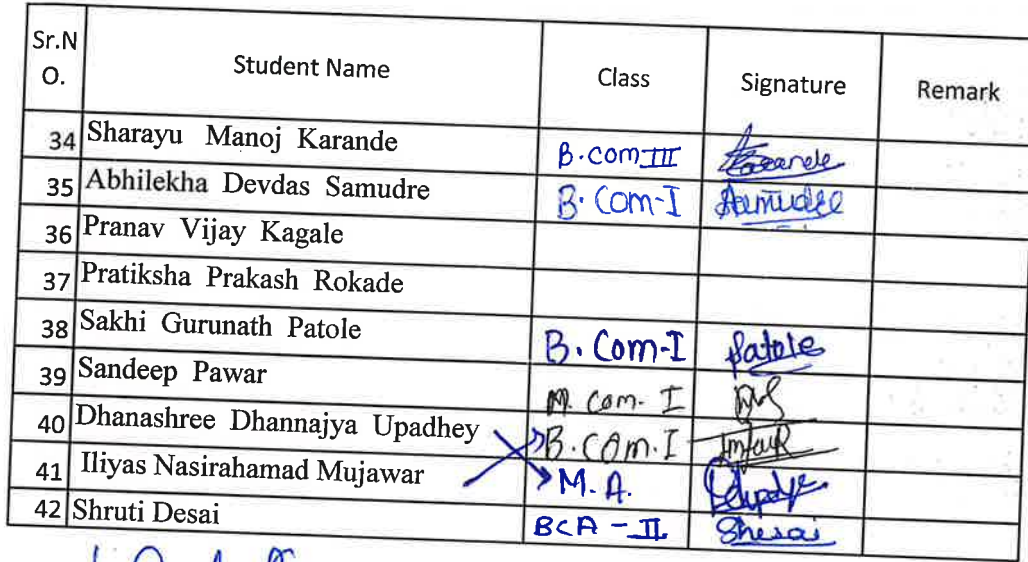 Sr.N O. Student Name Class Signature Remark
34 Sharayu Manoj Karande B.com III Karande
35 Abhilekha Devdas Samudre B. Com-I Samudre
36 Pranav Vijay Kagale
37 Pratiksha Prakash Rokade
38 Sakhi Gurunath Patole B. Com-I Patole
39 Sandeep Pawar M. Com. I
40 Dhanashree Dhannajya Upadhey B.COM.I
41 Iliyas Nasirahamad Mujawar M.A.
42 Shruti Desai BCA - II SDesai